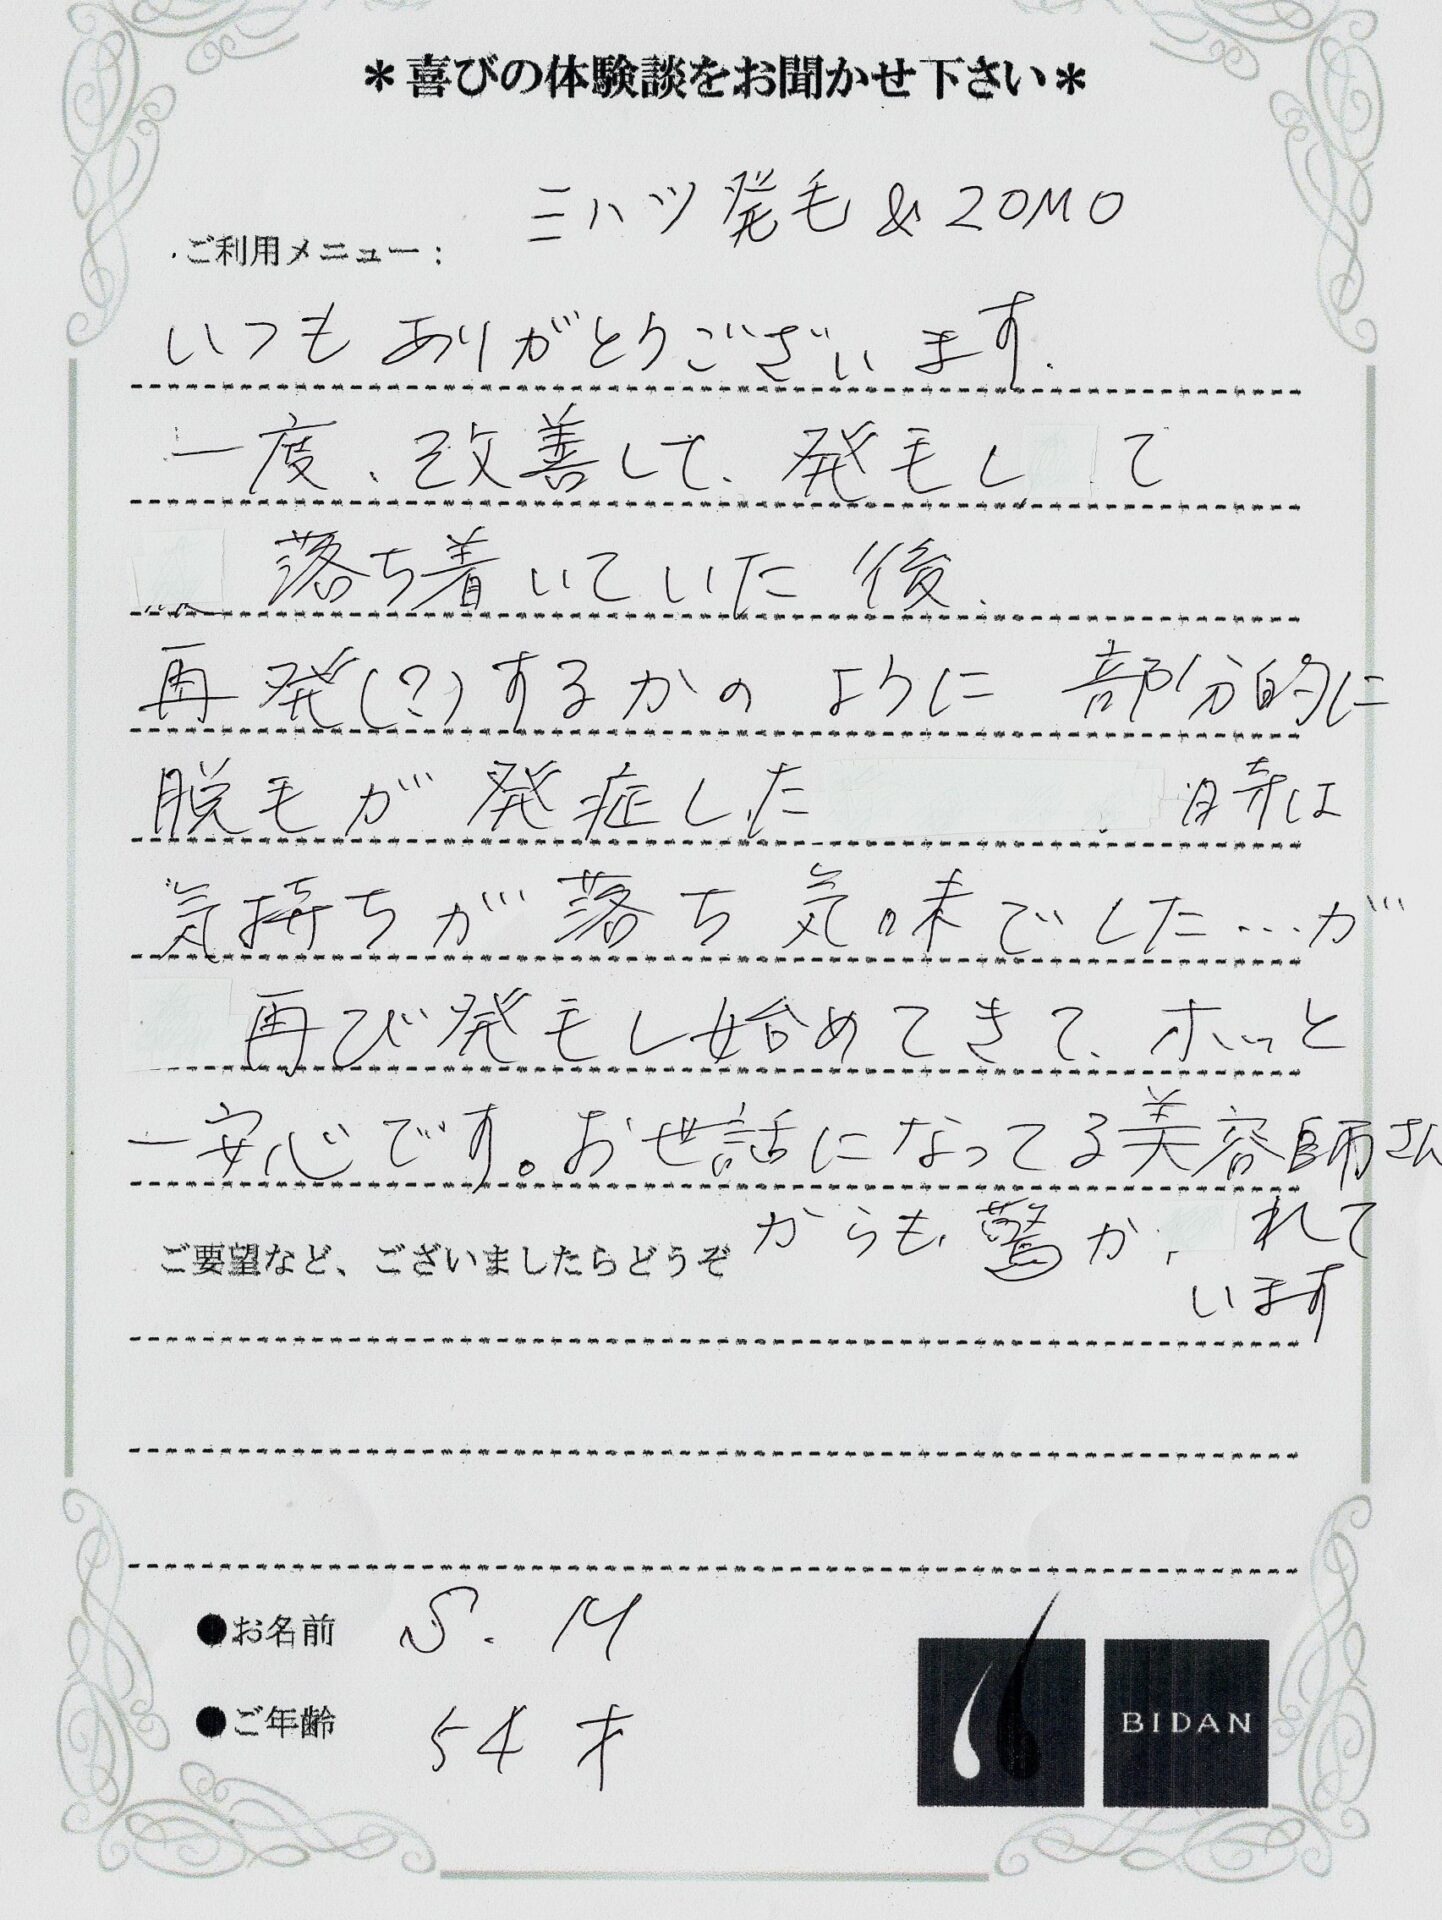 ＊喜びの体験談をお聞かせ下さい＊
ミハツ発毛&ZOMO
ご利用メニュー：
いつもありがとうございます.
一度、改善して、発毛して
落ち着いていた後、
再発(?)するかのように部分的に
脱毛が発症した時は
気持ちが落ち気味でした…が
再び発毛し始めてきて、ホッと
一安心です。お世話になってる美容師さん
からも、驚かれて
います
ご要望など、ございましたらどうぞ
●お名前 S.M
●ご年齢 54才
BIDAN